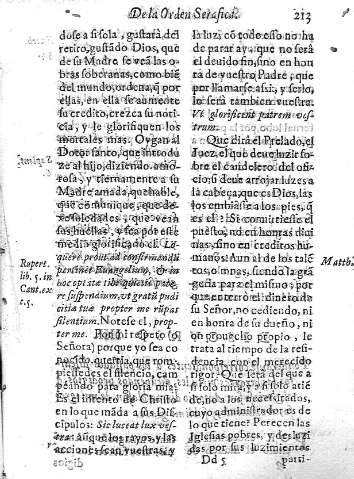 De la Orden Serafica.
213
dose a si sola, gustarà del
retiro, gustãdo Dios, que
de su Madre se veã las o-
bras soberanas, como biẽ
del mundo, ordena, q̃ por
ellas, en ella se aumente
su credito, crezca su noti-
cia, y le glorifiquen los
mortales mas. Oygan al
Doctor santo, que introdu
ze al hijo, diziendo, amo-
rosa, y tiernamente a su
Madre amada, que hable,
que comunique, que de-
xe soledades, que vean
sus huellas, y sea por esse
medio glorificado el.
Rupert.
lib. 5. in
Cant. ex
c. 5.
hoc opta te tibi quiete pate-
re suspendium, vt gratũ pudi
citiæ tuæ propter me rũpas
silentium. Notese el, prop-
ter me. Por mi respeto (ò
Señora) porque yo sea co-
nocido, querria, que rom-
piessedes el silencio, cam-
peando para gloria mia.
Es el intento de Christo
en lo que mãda a sus Dis-
cipulos: Sic luceat lux ves-
tra: aunque los rayos, y las
acciones sean vuestras, y
la luz cõ todo esso no ha
de parar aya, que no serà
el deuido fin, sino en hon
ra de vuestro Padre, que
por llamarse assi, y serlo,
lo serà tambien vuestra.
Vt glorificent patrem ves-
trum.
Que dirà el Prelado, el
Juez, el que deue luzir so-
bre el candelero del ofi-
cio, si deue arrojar luzes a
la cabeça, que es Dios, las
los embiasse a los pies, q̃
es el? Si conuirtiesse el
puesto, no en honras diui
nas, sino en creditos hu-
manos? Aun al de los talẽ
Matth.
tos, o mnas, siendo la grã
gecia para el mismo, por
que enterrò el dinero de
su Señor, no cediendo, ni
en honra de su dueño, ni
en prouecho propio, le
trata al tiempo de la resi-
dencia, con el merecido
rigor: Que serà del que a
si solo mira, y a solo atiẽ
de, no a los necessitados,
cuyo administrador es de
lo que tiene? Perecen las
Iglesias pobres, y desluzi
das por sus luzimientos
Dd 5
parti-